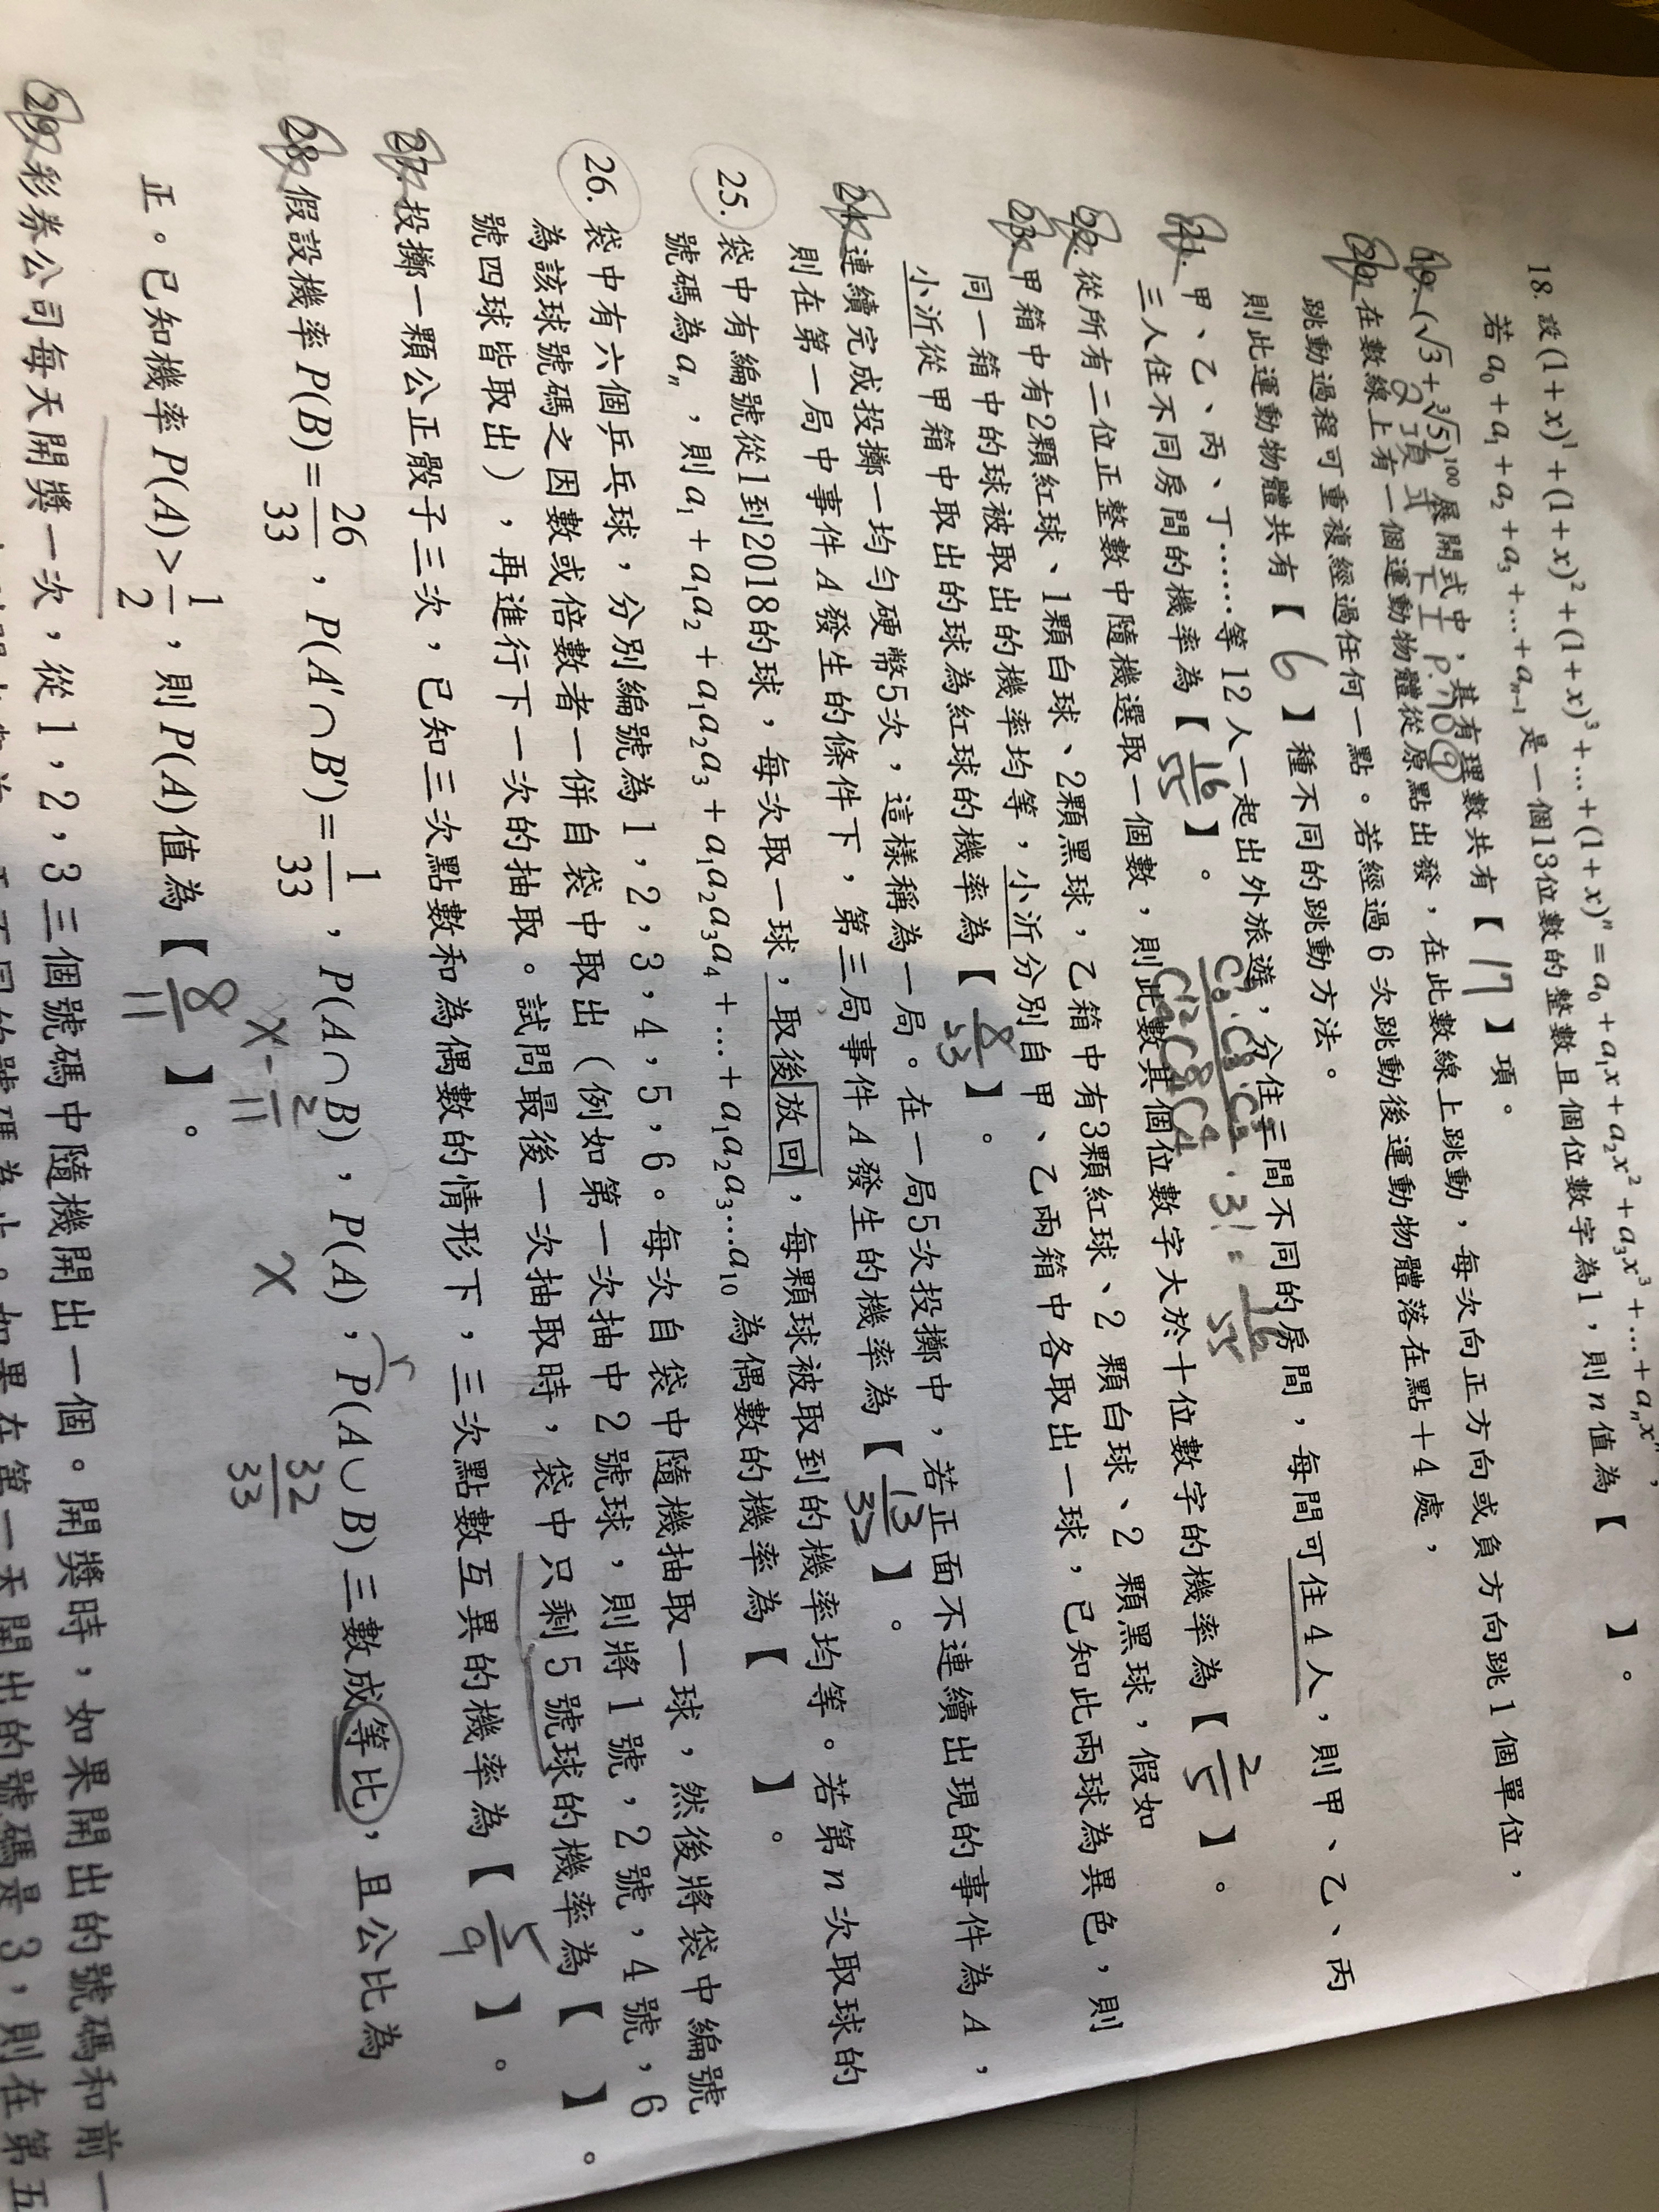 18. 設(1+x)¹+(1+x)²+(1+x)³+…+(1+x)ⁿ=a₀+a₁x+a₂x²+a₃x³+…+aₙxⁿ,
若a₀+a₁+a₂+a₃+…+aₙ₋₁是一個13位數的整數且個位數字為1,則n值為【 】。
19. (√3+∛5)¹⁰⁰展開式中,其有理數共有【 17 】項。
20. 在數線上有一個運動物體從原點出發,在此數線上跳動,每次向正方向或負方向跳1個單位,
跳動過程可重複經過任何一點。若經過6次跳動後運動物體落在點+4處,
則此運動物體共有【 6 】種不同的跳動方法。
21. 甲、乙、丙、丁……等12人一起出外旅遊,分住三間不同的房間,每間可住4人,則甲、乙、丙
三人住不同房間的機率為【 16/55 】。
· 3! = 16/55
22. 從所有二位正整數中隨機選取一個數,則此數其個位數字大於十位數字的機率為【 2/5 】。
23. 甲箱中有2顆紅球、1顆白球、2顆黑球,乙箱中有3顆紅球、2顆白球、2顆黑球,假如
同一箱中的球被取出的機率均等,小沂分別自甲、乙兩箱中各取出一球,已知此兩球為異色,則
小沂從甲箱中取出的球為紅球的機率為【 8/23 】。
24. 連續完成投擲一均勻硬幣5次,這樣稱為一局。在一局5次投擲中,若正面不連續出現的事件為A,
則在第一局中事件A發生的條件下,第三局事件A發生的機率為【 13/32 】。
25. 袋中有編號從1到2018的球,每次取一球,取後放回,每顆球被取到的機率均等。若第n次取球的
號碼為aₙ,則a₁+a₁a₂+a₁a₂a₃+a₁a₂a₃a₄+…+a₁a₂a₃…a₁₀為偶數的機率為【 】。
26. 袋中有六個乒乓球,分別編號為1,2,3,4,5,6。每次自袋中隨機抽取一球,然後將袋中編號
為該球號碼之因數或倍數者一併自袋中取出(例如第一次抽中2號球,則將1號,2號,4號,6
號四球皆取出),再進行下一次的抽取。試問最後一次抽取時,袋中只剩5號球的機率為【 】。
27. 投擲一顆公正骰子三次,已知三次點數和為偶數的情形下,三次點數互異的機率為【 5/9 】。
28. 假設機率P(B)=26/33,P(A′∩B′)=1/33,P(A∩B),P(A),P(A∪B)三數成等比,且公比為
x-2/11 x 32/33
r
正。已知機率P(A)>1/2,則P(A)值為【 8/11 】。
29. 彩券公司每天開獎一次,從1,2,3三個號碼中隨機開出一個。開獎時,如果開出的號碼和前一
如果在第一天開出的號碼是3,則在第五